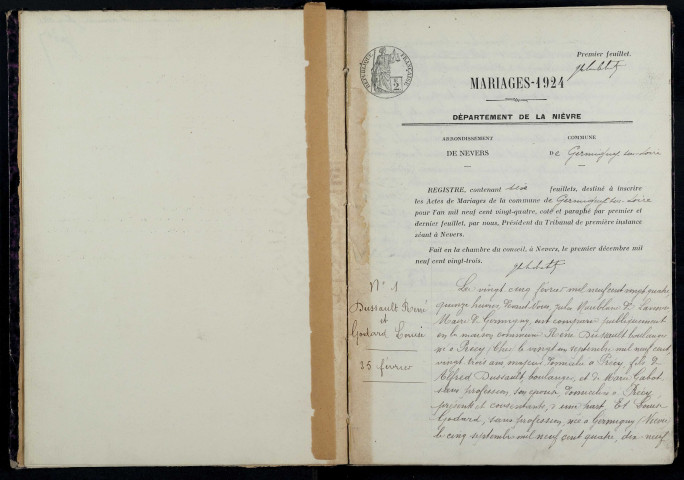 Premier feuillet.
RÉPUBLIQUE FRANÇAISE
2
MARIAGES-1924
DÉPARTEMENT DE LA NIÈVRE
ARRONDISSEMENT
DE NEVERS
COMMUNE
DE Germigny sur Loire
REGISTRE, contenant seize feuillets, destiné à inscrire
les Actes de Mariages de la commune de Germigny sur Loire
pour l'an mil neuf cent vingt-quatre, coté et paraphé par premier et
dernier feuillet, par nous, Président du Tribunal de première instance
séant à Nevers.
Fait en la chambre du conseil, à Nevers, le premier décembre mil
neuf cent vingt-trois.
N° 1
Dussault René
et
Godard Louise
25 février
Le vingt cinq février mil neuf cent vingt quatre
quinze heures devant Nous, Jules
Maire de Germigny, ont comparu publiquement
en la maison commune René Dussault boulanger
né à Précy Cher le vingt un septembre mil neuf cent,
vingt trois ans, majeur domicilié à Précy fils de
Alfred Dussault, boulanger, et de Marie Gabot,
sans profession son épouse, domiciliés à Précy
présents et consentants, d'une part, Et Louise
Godard, sans profession, née à Germigny (Nièvre)
le cinq septembre mil neuf cent quatre, dix-neuf